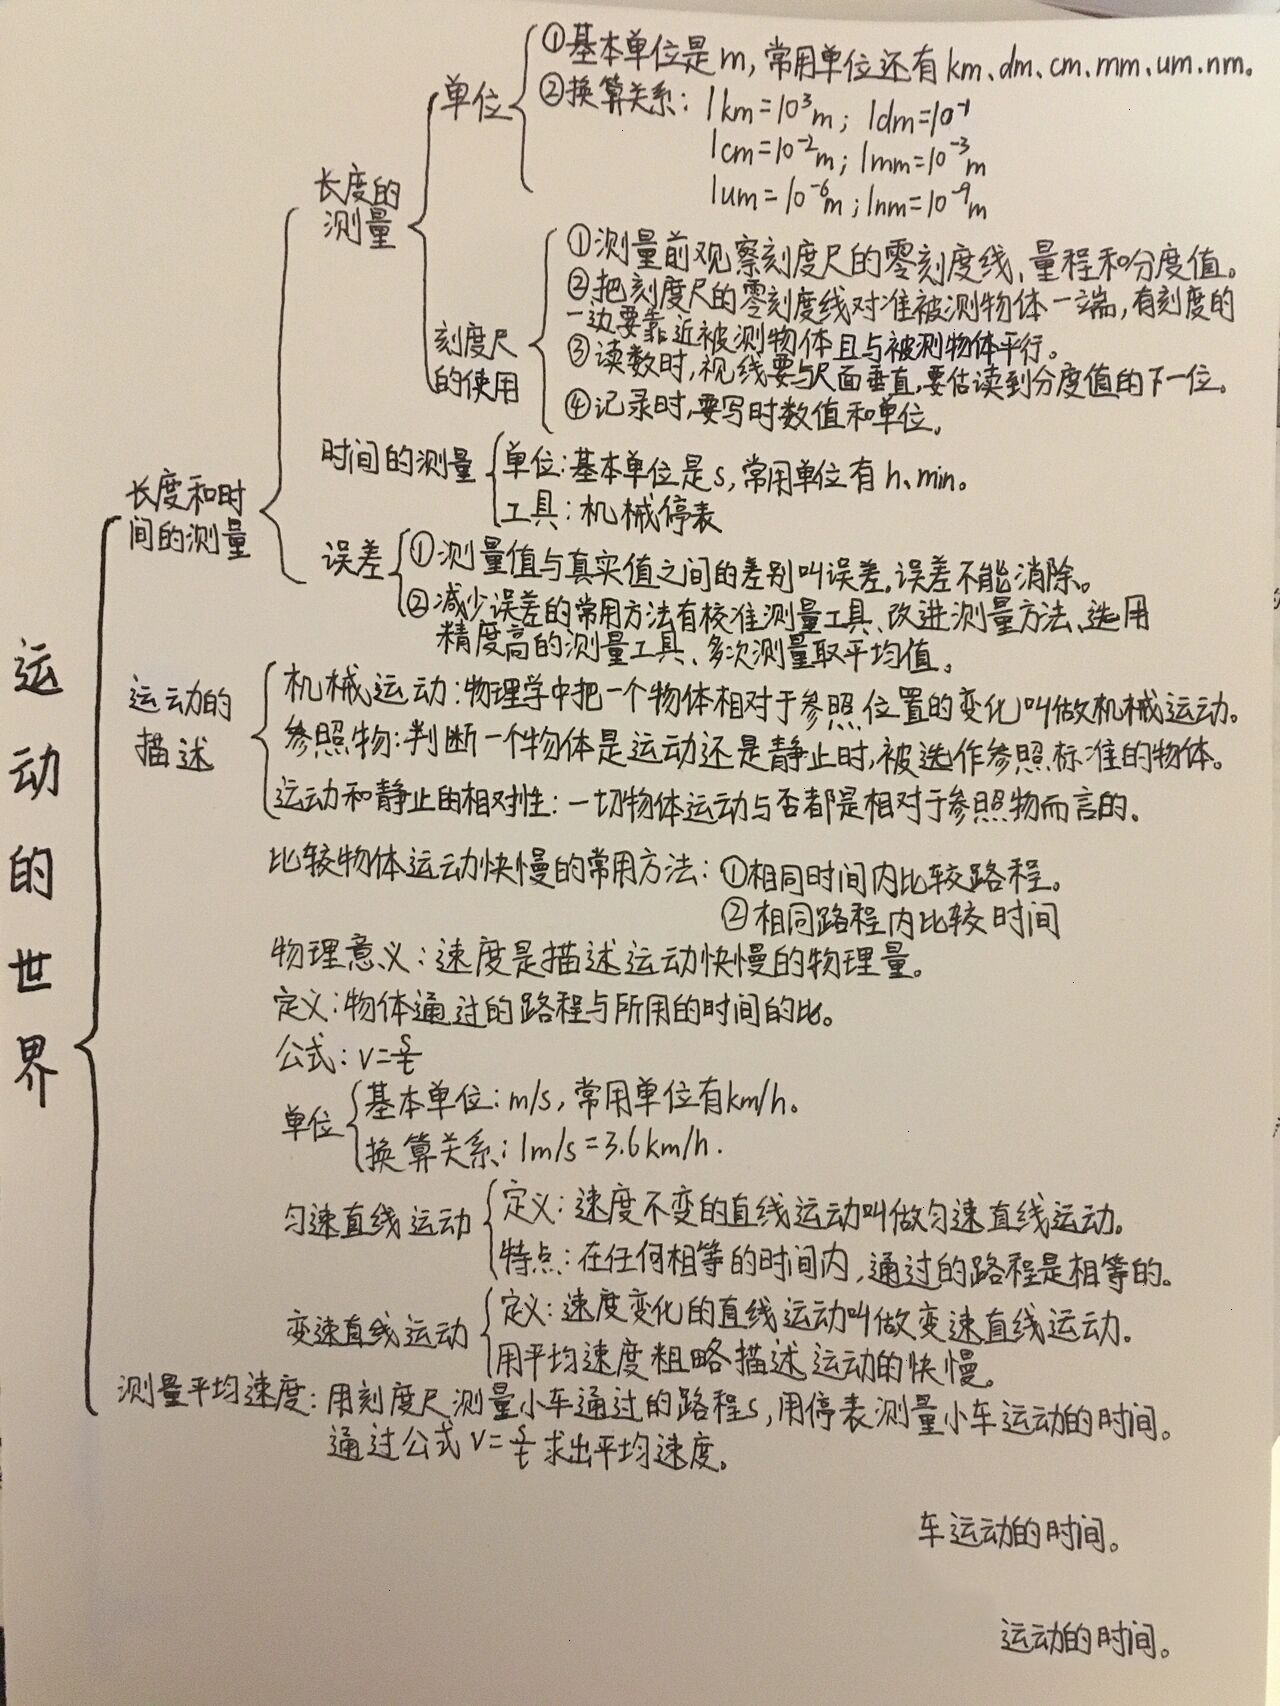 运动的世界
长度和时
间的测量
长度的
测量
单位
①基本单位是m,常用单位还有km、dm、cm、mm、um、nm。
②换算关系: 1km=10³m; 1dm=10⁻¹
1cm=10⁻²m; 1mm=10⁻³m
1um=10⁻⁶m; 1nm=10⁻⁹m
刻度尺
的使用
①测量前观察刻度尺的零刻度线、量程和分度值。
②把刻度尺的零刻度线对准被测物体一端,有刻度的
一边要靠近被测物体且与被测物体平行。
③读数时,视线要与尺面垂直,要估读到分度值的下一位。
④记录时,要写时数值和单位。
时间的测量
单位:基本单位是s,常用单位有h、min。
工具:机械停表
误差
①测量值与真实值之间的差别叫误差,误差不能消除。
②减少误差的常用方法有校准测量工具、改进测量方法、选用
精度高的测量工具、多次测量取平均值。
运动的
描述
机械运动:物理学中把一个物体相对于参照位置的变化叫做机械运动。
参照物:判断一个物体是运动还是静止时,被选作参照标准的物体。
运动和静止的相对性:一切物体运动与否都是相对于参照物而言的。
比较物体运动快慢的常用方法:①相同时间内比较路程。
②相同路程内比较时间
物理意义:速度是描述运动快慢的物理量。
定义:物体通过的路程与所用的时间的比。
公式:v=s/t
单位
基本单位:m/s,常用单位有km/h。
换算关系:1m/s=3.6km/h.
匀速直线运动
定义:速度不变的直线运动叫做匀速直线运动。
特点:在任何相等的时间内,通过的路程是相等的。
变速直线运动
定义:速度变化的直线运动叫做变速直线运动。
用平均速度粗略描述运动的快慢。
测量平均速度:用刻度尺测量小车通过的路程s,用停表测量小车运动的时间。
通过公式v=s/t求出平均速度。
车运动的时间。
运动的时间。